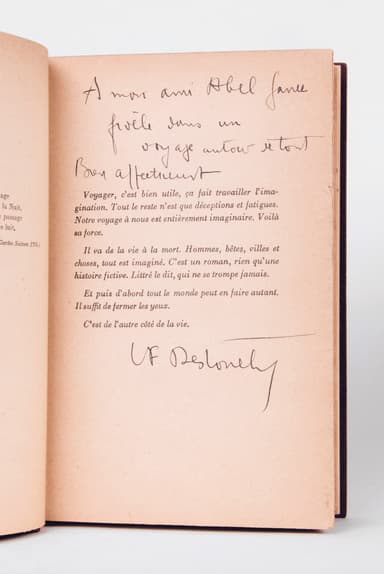 sage
la Nuit.
passage
luit.
Gardes Suisses 1793
A mon ami Abel Gance
poète dans un
voyage autour de tout
Bien affectueusement
Voyager, c'est bien utile, ça fait travailler l'ima-
gination. Tout le reste n'est que déceptions et fatigues.
Notre voyage à nous est entièrement imaginaire. Voilà
sa force.
Il va de la vie à la mort. Hommes, bêtes, villes et
choses, tout est imaginé. C'est un roman, rien qu'une
histoire fictive. Littré le dit, qui ne se trompe jamais.
Et puis d'abord tout le monde peut en faire autant.
Il suffit de fermer les yeux.
C'est de l'autre côté de la vie.
LF Destouches